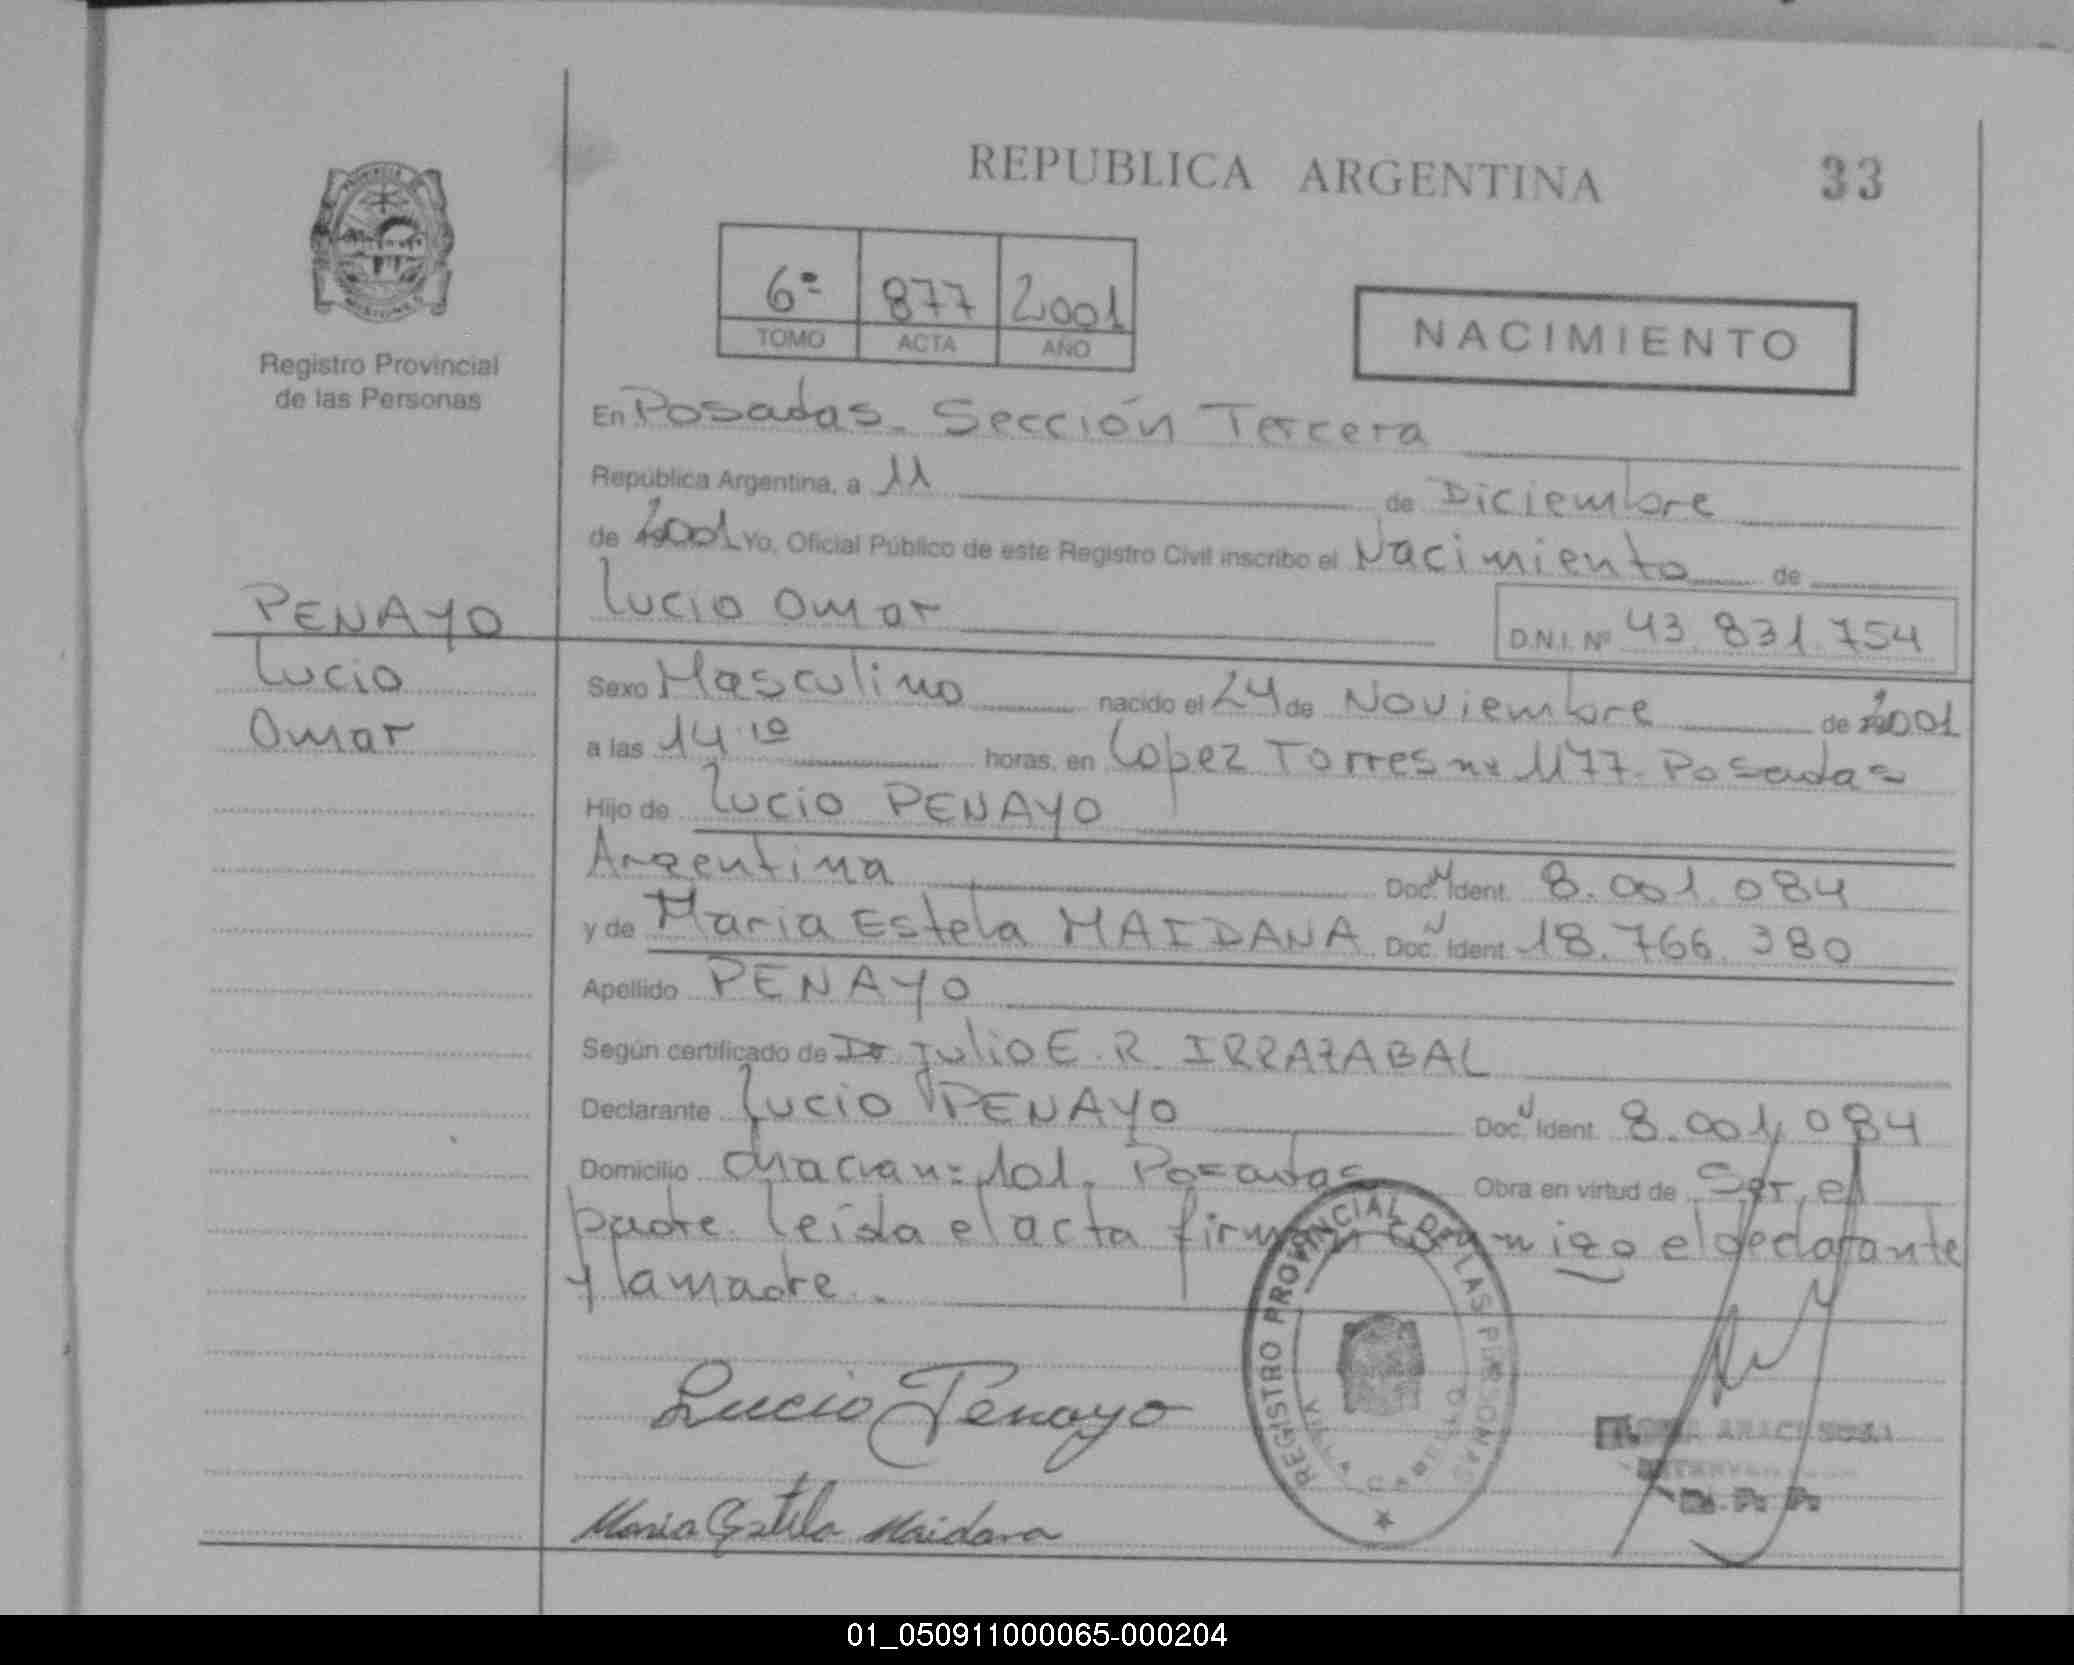 REPUBLICA ARGENTINA
33
Registro Provincial
de las Personas
6º 877 2001
TOMO ACTA AÑO
NACIMIENTO
En Posadas. Sección Tercera
República Argentina, a 11 de Diciembre
de 2001 Yo, Oficial Público de este Registro Civil inscribo el Nacimiento de
Lucio Omar
D.N.I. Nº 43.831.754
PENAYO
Lucio
Omar
Sexo Masculino nacido el 24 de Noviembre de 2001
a las 14.10 horas, en Lopez Torres nº 1177. Posadas
Hijo de Lucio PENAYO
Argentina Doc. N Ident. 8.001.084
y de Maria Estela MAIDANA Doc. N Ident. 18.766.380
Apellido PENAYO
Según certificado de Dr Julio E. R. IRRAZABAL
Declarante Lucio PENAYO Doc. N Ident. 8.001.084
Domicilio chacra nº 101. Posadas Obra en virtud de Ser el
padre. Leída el acta firman conmigo el declarante
y la madre.
Lucio Penayo
Maria Estela Maidana
REGISTRO PROVINCIAL DE LAS PERSONAS
VILLA CABELLO
01_050911000065-000204